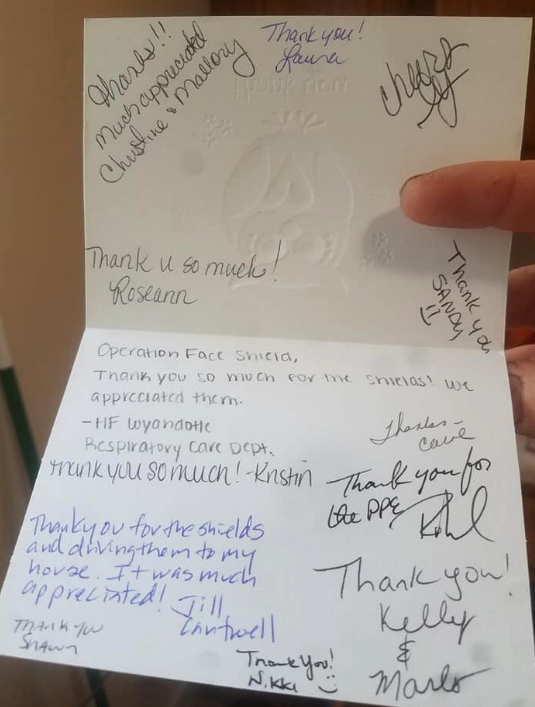 Thanks!!
Much appreciated
Christine & Mallory
Thank you!
Laura
Thank u so much!
Roseann
Thank you
SANDY
Operation Face Shield,
Thank you so much for the shields! We
appreciated them.
-HF Wyandotte
Respiratory Care Dept.
Thank you so much! -Kristin
Thanks-
Thank you for
the PPE
Thank you for the shields
and driving them to my
house. It was much
appreciated! Jill
Cantwell
Thank you
Shawn
Thank you!
Kelly
&
Marlo
Thank You!
Nikki